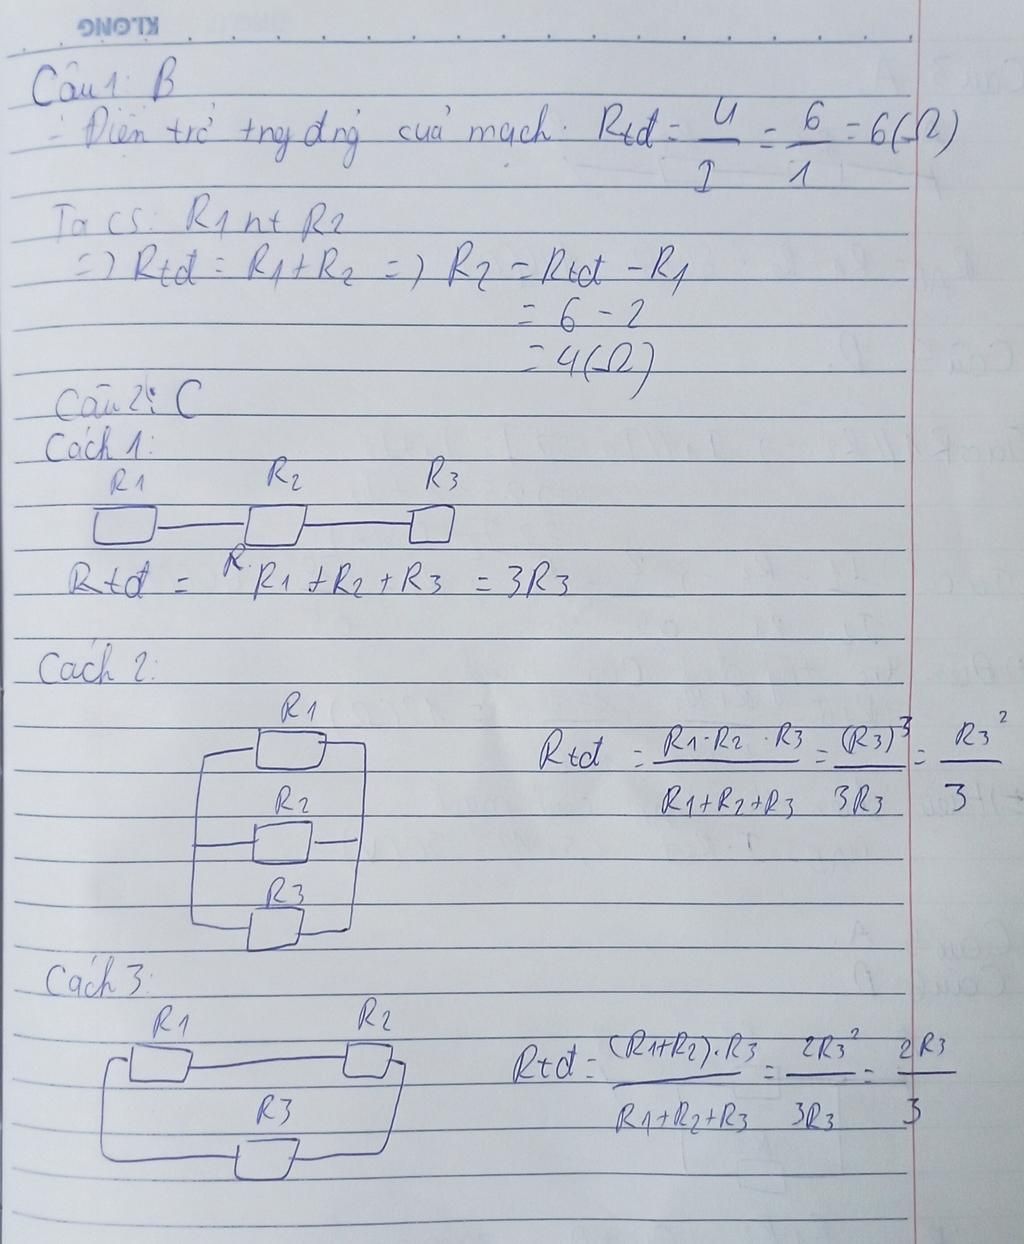 KLONG
Câu 1: B
- Điện trở tng đng của mạch. Rtđ = U/I = 6/1 = 6(Ω)
Ta có: R1 nt R2
=> Rtđ = R1 + R2 => R2 = Rtđ - R1
= 6 - 2
= 4(Ω)
Câu 2: C
Cách 1:
R1 R2 R3
Rtđ = R1 + R2 + R3 = 3R3
Cách 2:
R1
R2
R3
Rtđ = R1.R2.R3/R1+R2+R3 = (R3)³/3R3 = R3²/3
Cách 3:
R1 R2
R3
Rtđ = (R1+R2).R3/R1+R2+R3 = 2R3²/3R3 = 2R3/3